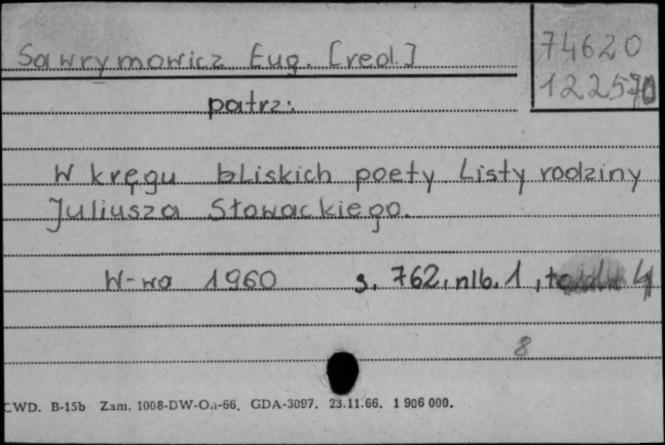 Sawrymowicz Eug. [red.]
74620
122570
patrz:
W kręgu bliskich poety Listy rodziny
Juliusza Słowackiego.
W-wa 1960 s. 762, nlb. 1, 4
8
CWD. B-15b Zam. 1008-DW-On-66. GDA-3097. 23.11.66. 1 906 000.